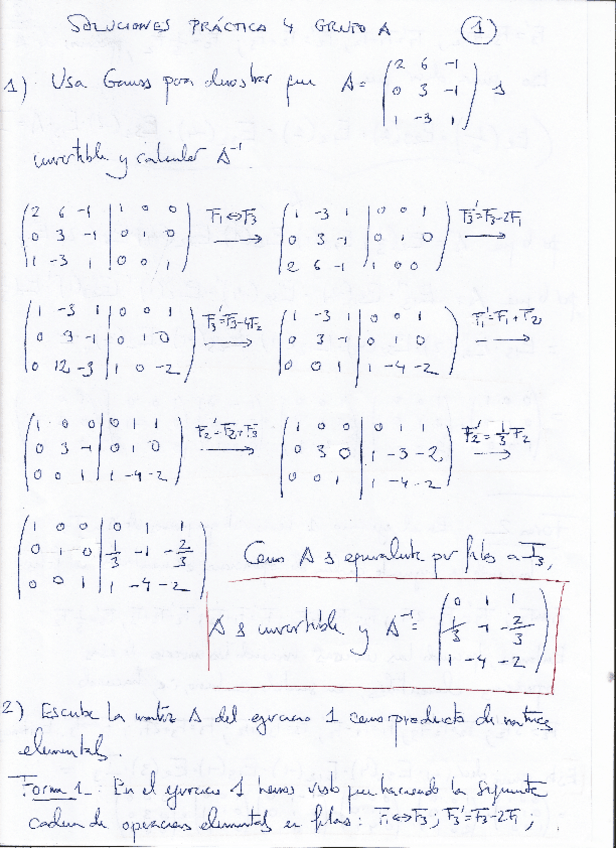 SOLUCIONES PRÁCTICA 4 GRUPO A 1
1) Usa Gauss para demostrar que A = (2 6 -1
0 3 -1
1 -3 1) es
invertible y calcular A⁻¹.
(2 6 -1 | 1 0 0
0 3 -1 | 0 1 0
1 -3 1 | 0 0 1) F₁↔F₃ → (1 -3 1 | 0 0 1
0 3 -1 | 0 1 0
2 6 -1 | 1 0 0) F₃'=F₃-2F₁ →
(1 -3 1 | 0 0 1
0 3 -1 | 0 1 0
0 12 -3 | 1 0 -2) F₃'=F₃-4F₂ → (1 -3 1 | 0 0 1
0 3 -1 | 0 1 0
0 0 1 | 1 -4 -2) F₁'=F₁+F₂ →
(1 0 0 | 0 1 1
0 3 -1 | 0 1 0
0 0 1 | 1 -4 -2) F₂'=F₂+F₃ → (1 0 0 | 0 1 1
0 3 0 | 1 -3 -2
0 0 1 | 1 -4 -2) F₂'=1/3 F₂ →
(1 0 0 | 0 1
0 1 0 | 1/3 -1 -2/3
0 0 1 | 1 -4 -2) Como A es equivalente por filas a I₃,
A es invertible y A⁻¹ = (0 1 1
1/3 -1 -2/3
1 -4 -2)
2) Escribe la matriz A del ejercicio 1 como producto de matrices
elementales.
Forma 1. En el ejercicio 1 hemos visto que haciendo la siguiente
cadena de operaciones elementales en filas: F₁↔F₃; F₃'=F₃-2F₁;